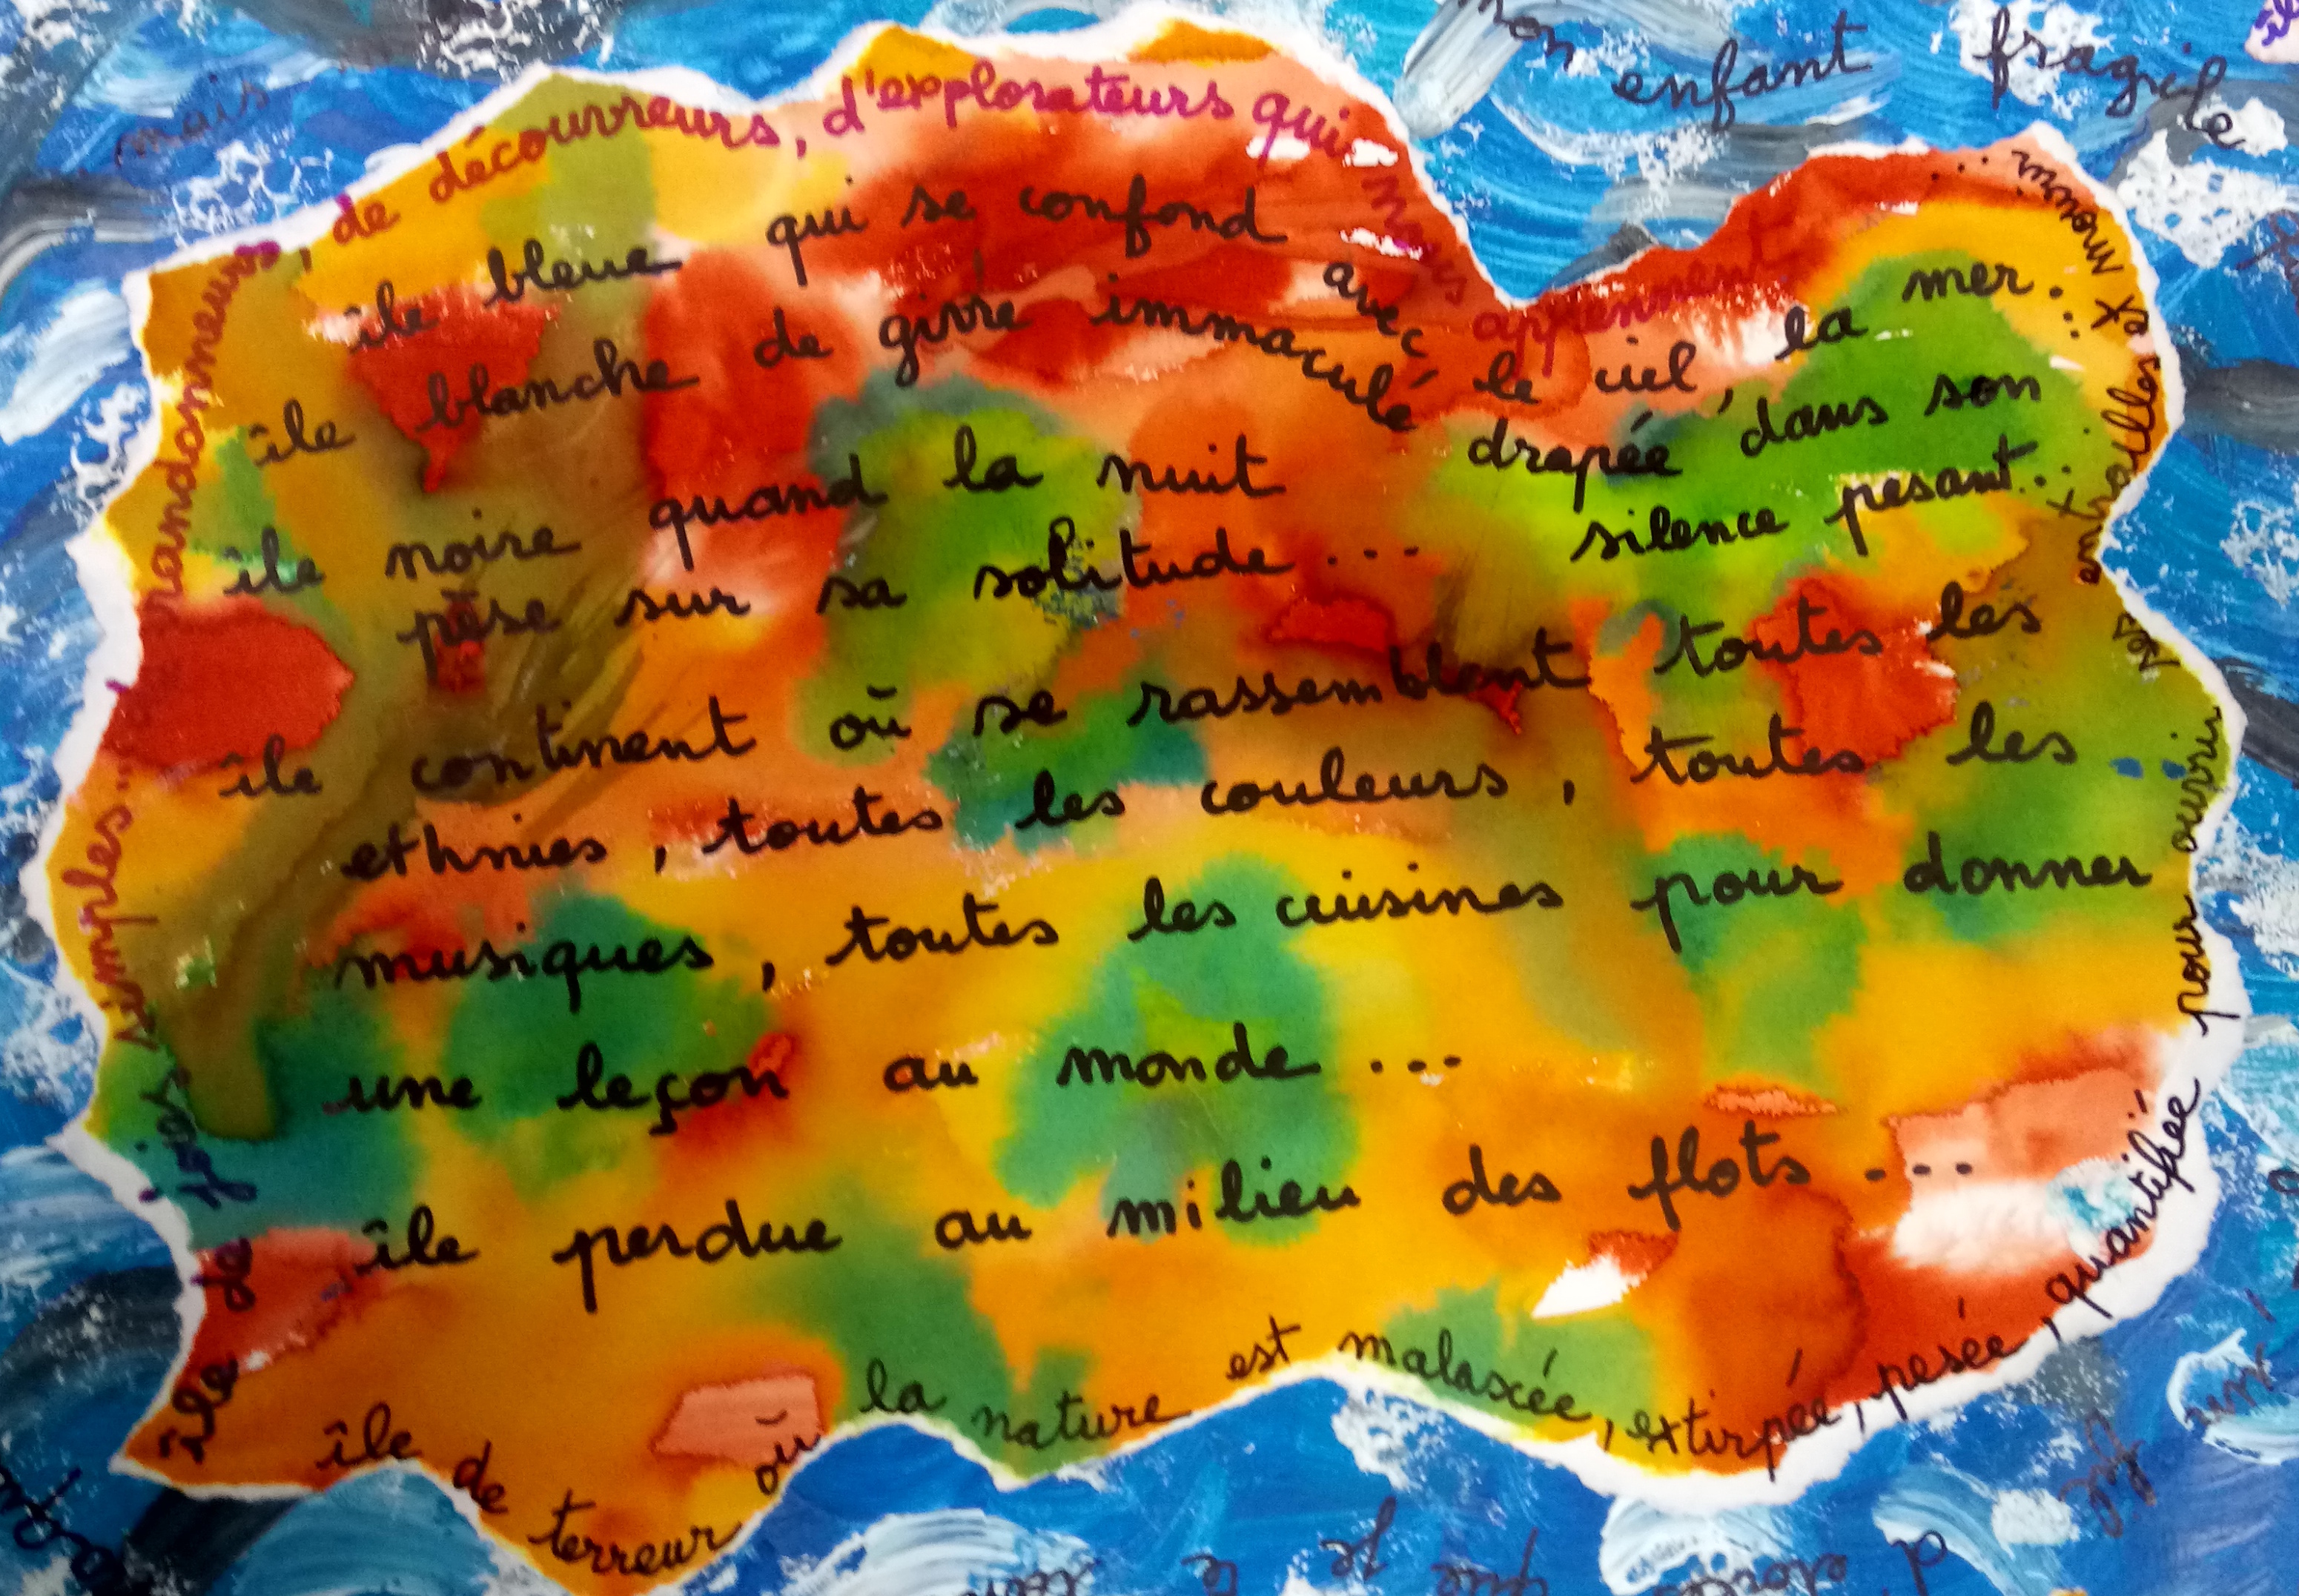 mon enfant fragile
mais
île bleue qui se confond avec le ciel, la mer...
île blanche de givre immaculé drapée dans son
silence pesant...
île noire quand la nuit
pèse sur sa solitude...
île continent où se rassemblent toutes les
ethnies, toutes les couleurs, toutes les
musiques, toutes les cuisines pour donner
une leçon au monde...
île perdue au milieu des flots...
île de terreur où la nature est malaxée, extirpée, pesée, quantifiée pour ouvrir ses entrailles et mourir...
île de joies simples... randonneurs, de découvreurs, d'explorateurs qui nous apprennent